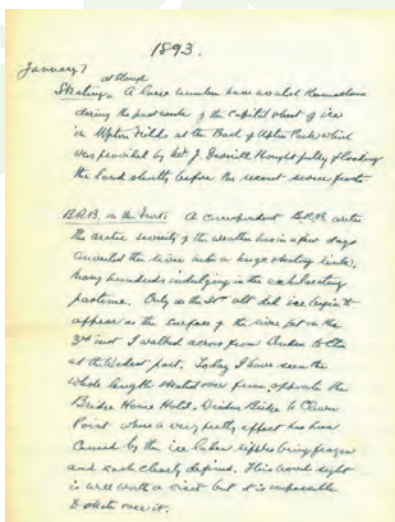 1893.
January 7 at Slough
Skating. A large number have availed themselves
during the past week of the capital sheet of ice
in Upton Fields at the Back of Upton Park which
was provided by Mr J. thoughtfully flooding
the land shortly before the recent severe frosts.
B.R.B. on the A correspondent B.R.B. writes
the arctic severity of the weather has in a few days
converted the river into a huge skating rink,
many hundreds indulging in the exhilarating
pastime. Only on the ult did ice begin to
appear on the surface of the river but on the
3rd inst I walked across from to
at the widest part. Today I have seen the
whole length skated over from opposite the
Bridge House Hotel, Windsor Bridge to Clewer
Point where a very pretty effect has been
caused by the ice ripples being frozen
and each clearly defined. This novel sight
is well worth a visit but it is impossible
to skate over it.